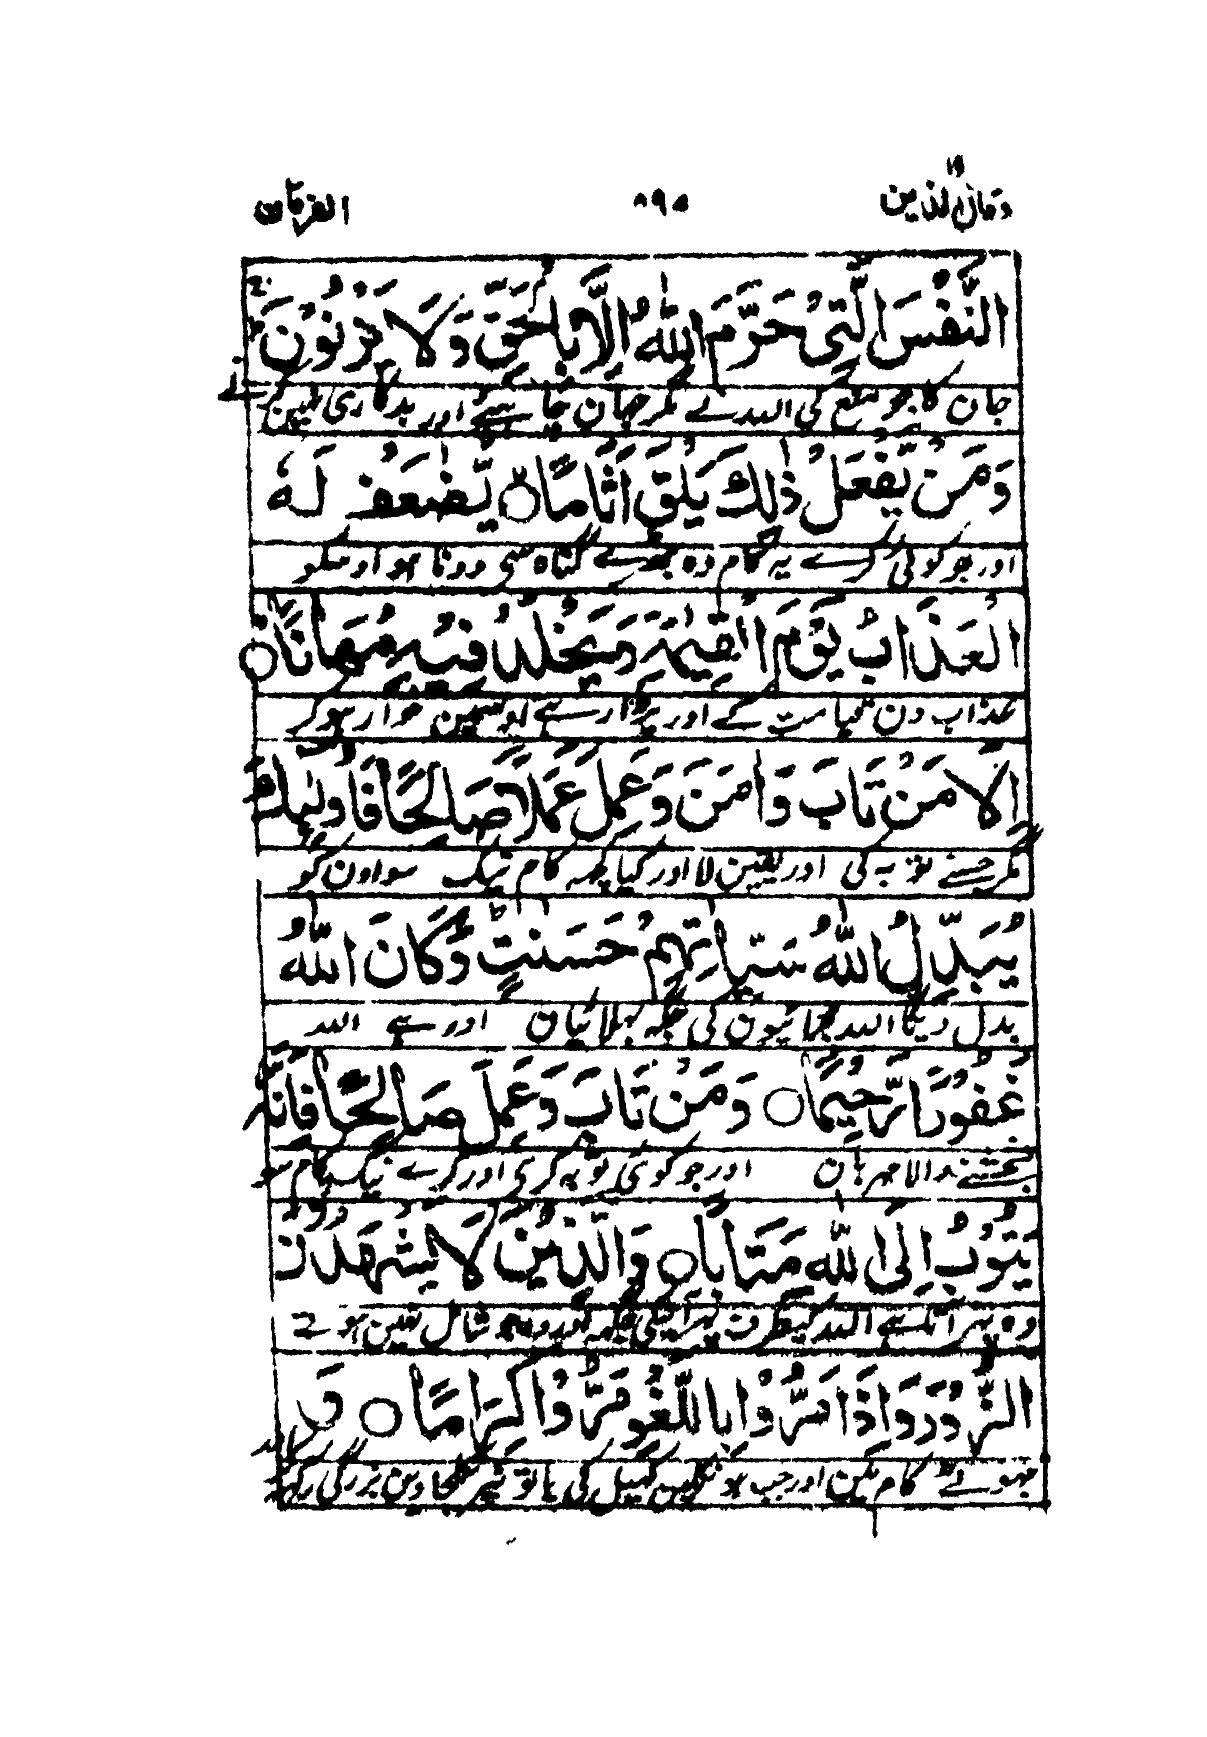 وقال الذين ١٩
٨٩٥
الفرقان
النَّفْسَ الَّتِیْ حَرَّمَ اللّٰهُ اِلَّا بِالْحَقِّ وَلَا یَزْنُوْنَ
جان کا جو منع کی اللہ نے مگر جہان چاہیے اور بدکاری نہین کرتے
وَمَنْ یَّفْعَلْ ذٰلِكَ یَلْقَ اَثَامًا ○ یُّضٰعَفْ لَهُ
اور جو کوئی کرے یہ کام وہ بھرے گناہ سی دونا ہو اوسکو
الْعَذَابُ یَوْمَ الْقِیٰمَةِ وَیَخْلُدْ فِیْهٖ مُهَانًا ○
عذاب دن قیامت کے اور پڑا رہے اوسمین خوار ہو کر
اِلَّا مَنْ تَابَ وَاٰمَنَ وَعَمِلَ عَمَلًا صَالِحًا فَاُولٰٓئِكَ
مگر جسنے توبہ کی اور یقین لا اور کیا کچہہ کام نیک سو اون کو
یُبَدِّلُ اللّٰهُ سَیِّاٰتِهِمْ حَسَنٰتٍ وَكَانَ اللّٰهُ
بدل دیگا اللہ برائیون کی جگہہ بھلائیان اور ہے اللہ
غَفُوْرًا رَّحِیْمًا ○ وَمَنْ تَابَ وَعَمِلَ صَالِحًا فَاِنَّهٗ
بخشنے والا مہربان اور جو کوئی توبہ کری اور کرے نیک کام سو
یَتُوْبُ اِلَی اللّٰهِ مَتَابًا ○ وَالَّذِیْنَ لَا یَشْهَدُوْنَ
وہ پھر آتا ہے اللہ کیطرف پھر آنیکی جگہہ اور وے جو شامل نہین ہوتے
الزُّوْرَ وَاِذَا مَرُّوْا بِاللَّغْوِ مَرُّوْا كِرَامًا ○ وَ
جھوٹے کام مین اور جب ہو نکلین کھیل کی باتون پر نکلجاوین بزرگی رکھہ